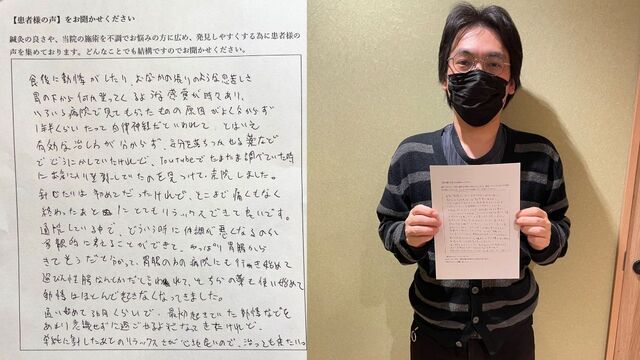 【患者様の声】をお聞かせください
鍼灸の良さや、当院の施術を不調でお悩みの方に広め、発見しやすくする為に患者様の
声を集めております。どんなことでも結構ですのでお聞かせください。
食後に動悸がしたり、おなかの張りのような息苦しさ
胃の下から何か登ってくるような感覚が時々あり、
いろいろ病院で見てもらったものの原因がよく分からず
1年半くらいたって自律神経だといわれて、とはいえ
有効な治し方が分からず、気分を落ちつかせる薬などで
どうにかしていたけれど、Youtubeでたまたま調べていた時に
お気に入りを押していたのを見つけて、来院しました。
針じたいは初めてだったけれど、そこまで痛くもなく
終わったあとにとてもリラックスできて良いです。
通院している中で、どういう所に体調が悪くなるのか
客観的に考えることができて、やっぱり胃腸から
きてそうだと分かって、胃腸の方の病院にも行き始めて
過びん性腸なんとかだと言われて、そちらの薬を使い始めて
動悸はほとんど起きなくなってきました。
通い始めて3ヵ月くらいで、最初起きていた動悸などを
あまり意識せずに過ごせるようになってきたけれど、
単純に針したあとのリラックスさが心地良いので、治っても来たいっ